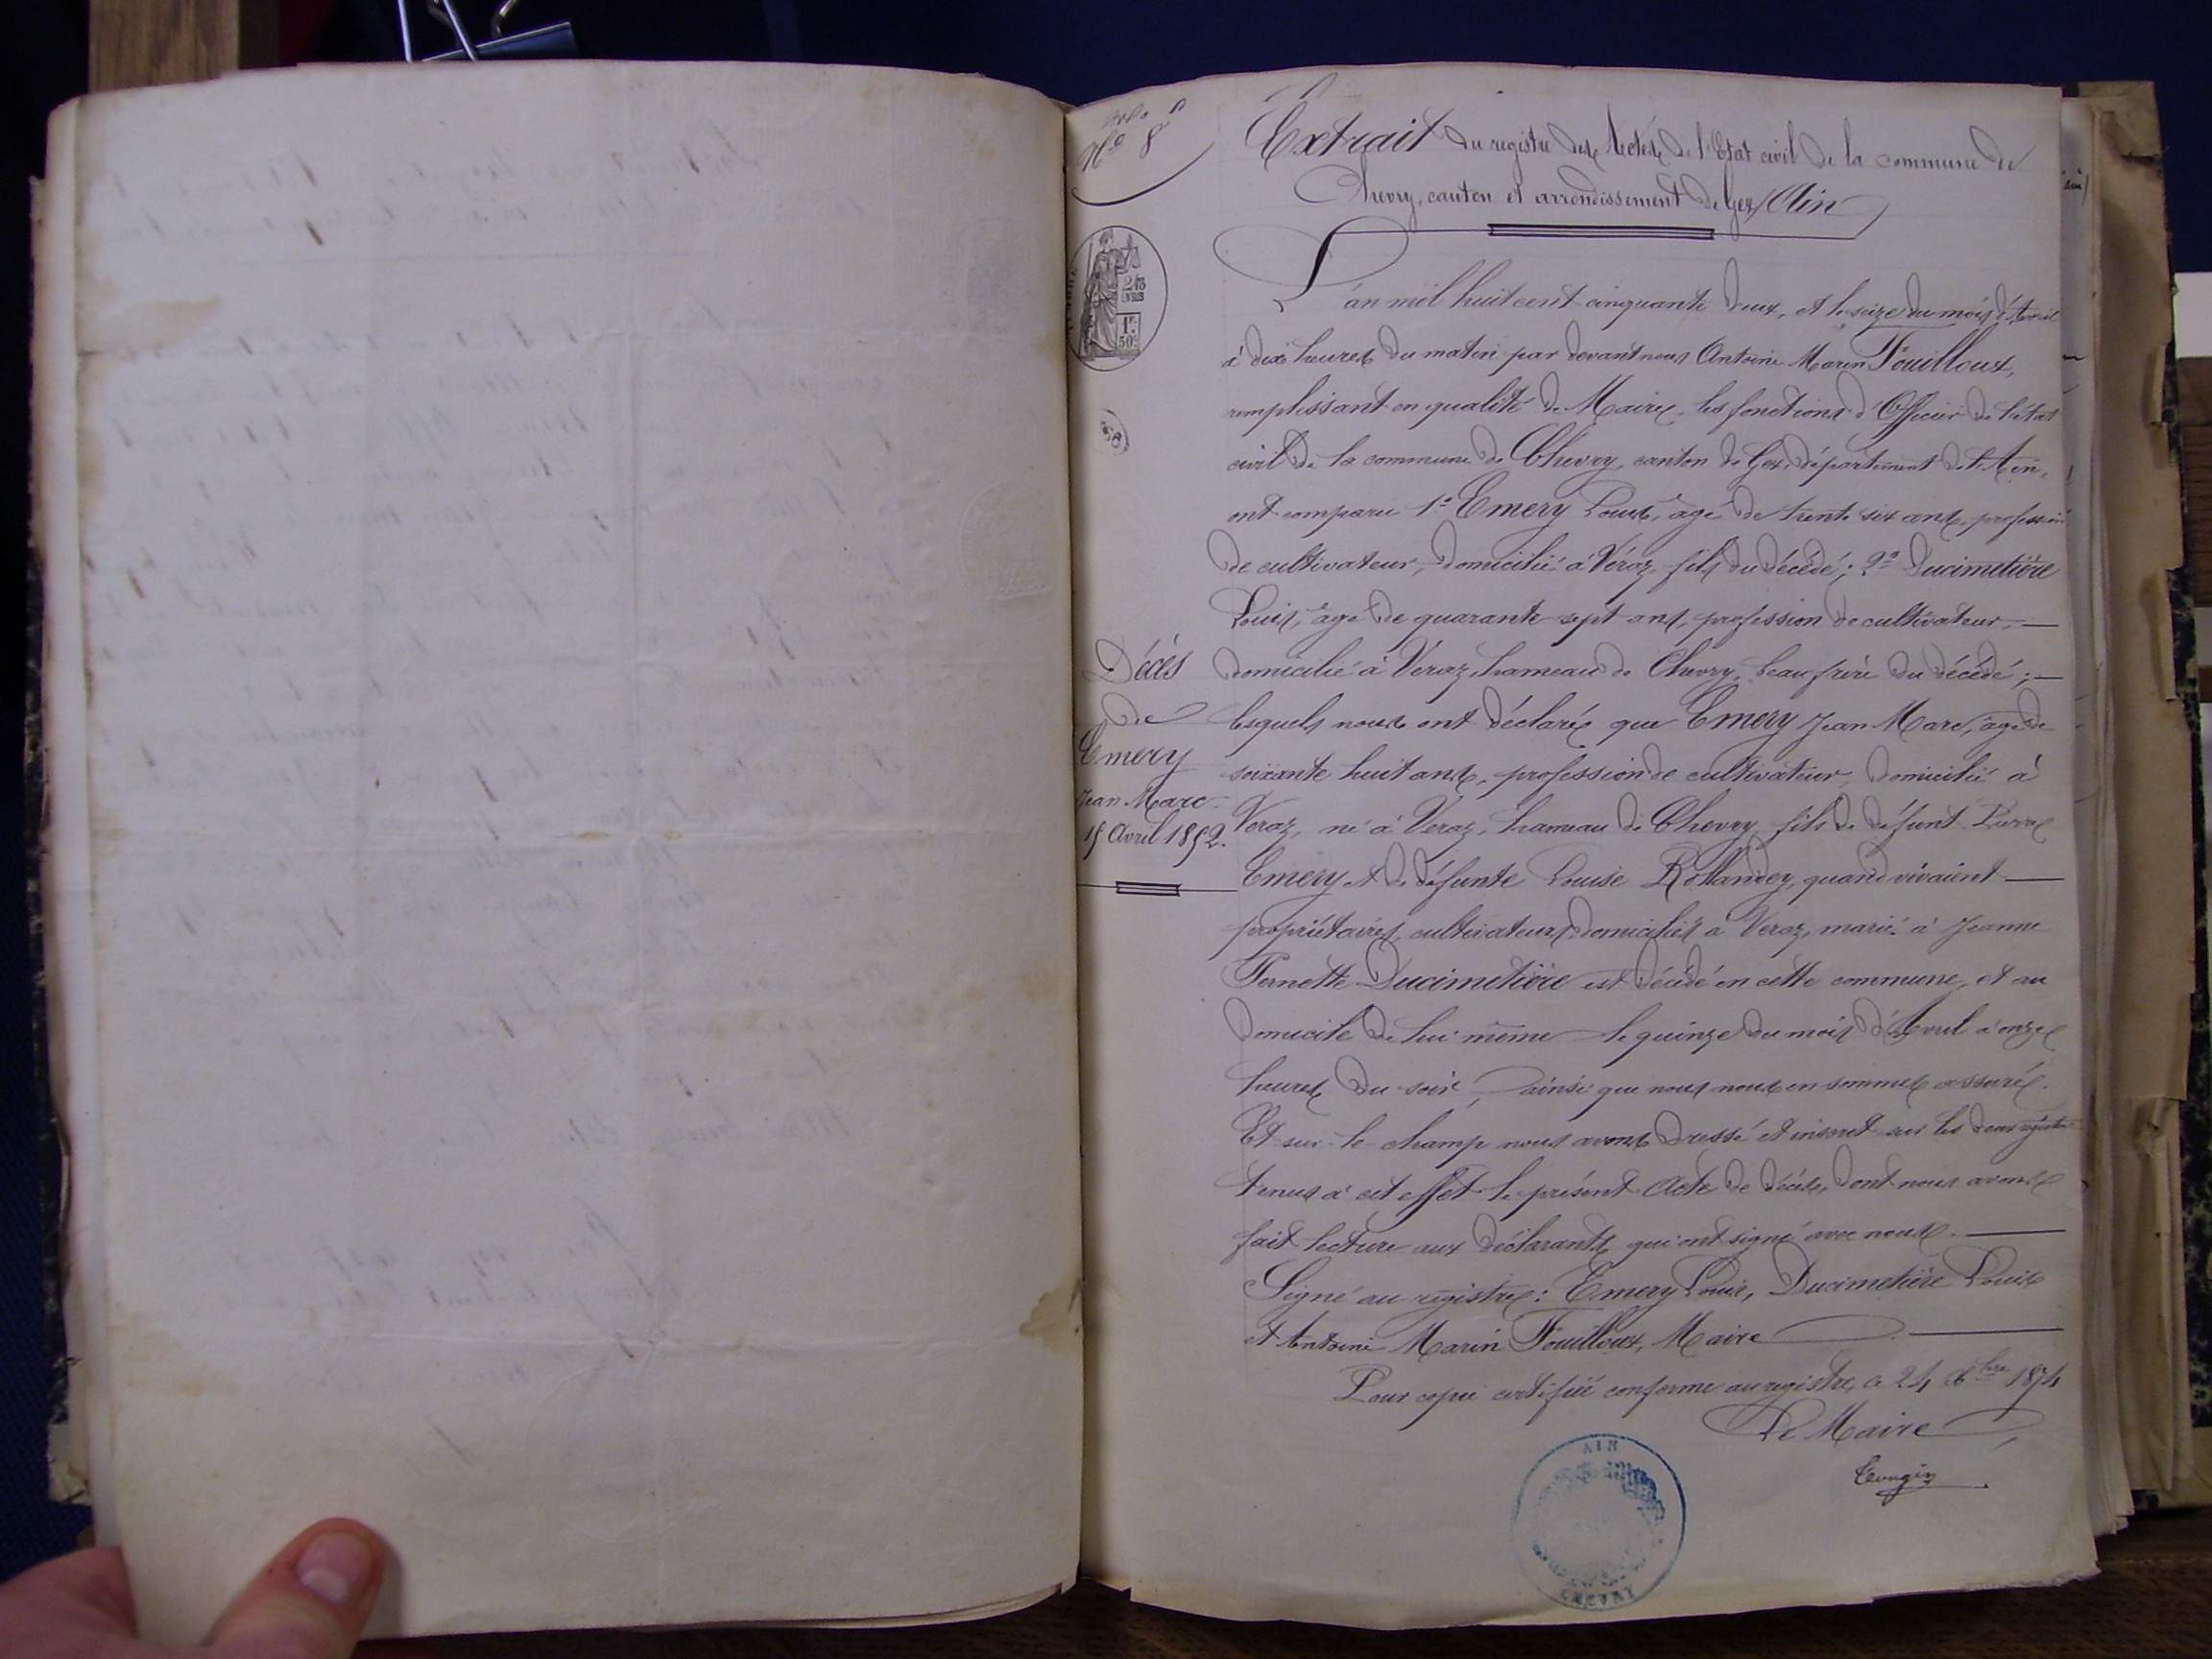 N° 8
Extrait du registre des Actes de l'Etat civil de la commune de
Chevry, canton et arrondissement de Gex (Ain)
2/10
EN SUS
1F.
50c.
L'an mil huit cent cinquante deux, et le seize du mois d'Avril
à dix heures du matin par devant nous Antoine Marin Fouilloux,
remplissant en qualité de Maire, les fonctions d'Officier de l'état
civil de la commune de Chevry, canton de Gex, département de l'Ain,
ont comparu 1° Emery Louis, âgé de trente six ans, profession
de cultivateur, domicilié à Véraz, fils du décédé; 2° Ducimetière
Louis, âgé de quarante sept ans, profession de cultivateur, —
domicilié à Véraz, hameau de Chevry, beau frère du décédé; —
lesquels nous ont déclaré que Emery Jean Marc, âgé de
soixante huit ans, profession de cultivateur, domicilié à
Veraz, né à Veraz, hameau de Chevry, fils de défunt Pierre
Emery et de défunte Louise Rollandez, quand vivaient —
propriétaires cultivateurs domiciliés à Veraz, marié à Jeanne
Pernette Ducimetière est décédé en cette commune, et au
domicile de lui même le quinze du mois d'Avril à onze
heures du soir, ainsi que nous nous en sommes assuré.
Et sur le champ nous avons dressé et inscrit sur les deux registres
tenus à cet effet le présent Acte de décès, dont nous avons
fait lecture aux déclarants qui ont signé avec nous. —
Signé au registre: Emery Louis, Ducimetière Louis
et Antoine Marin Fouilloux, Maire —
Pour copie certifiée conforme au registre, ce 24 Xbre 1874
Le Maire
Décès
de
Emery
Jean Marc
15 Avril 1852.
AIN
CHEVRY